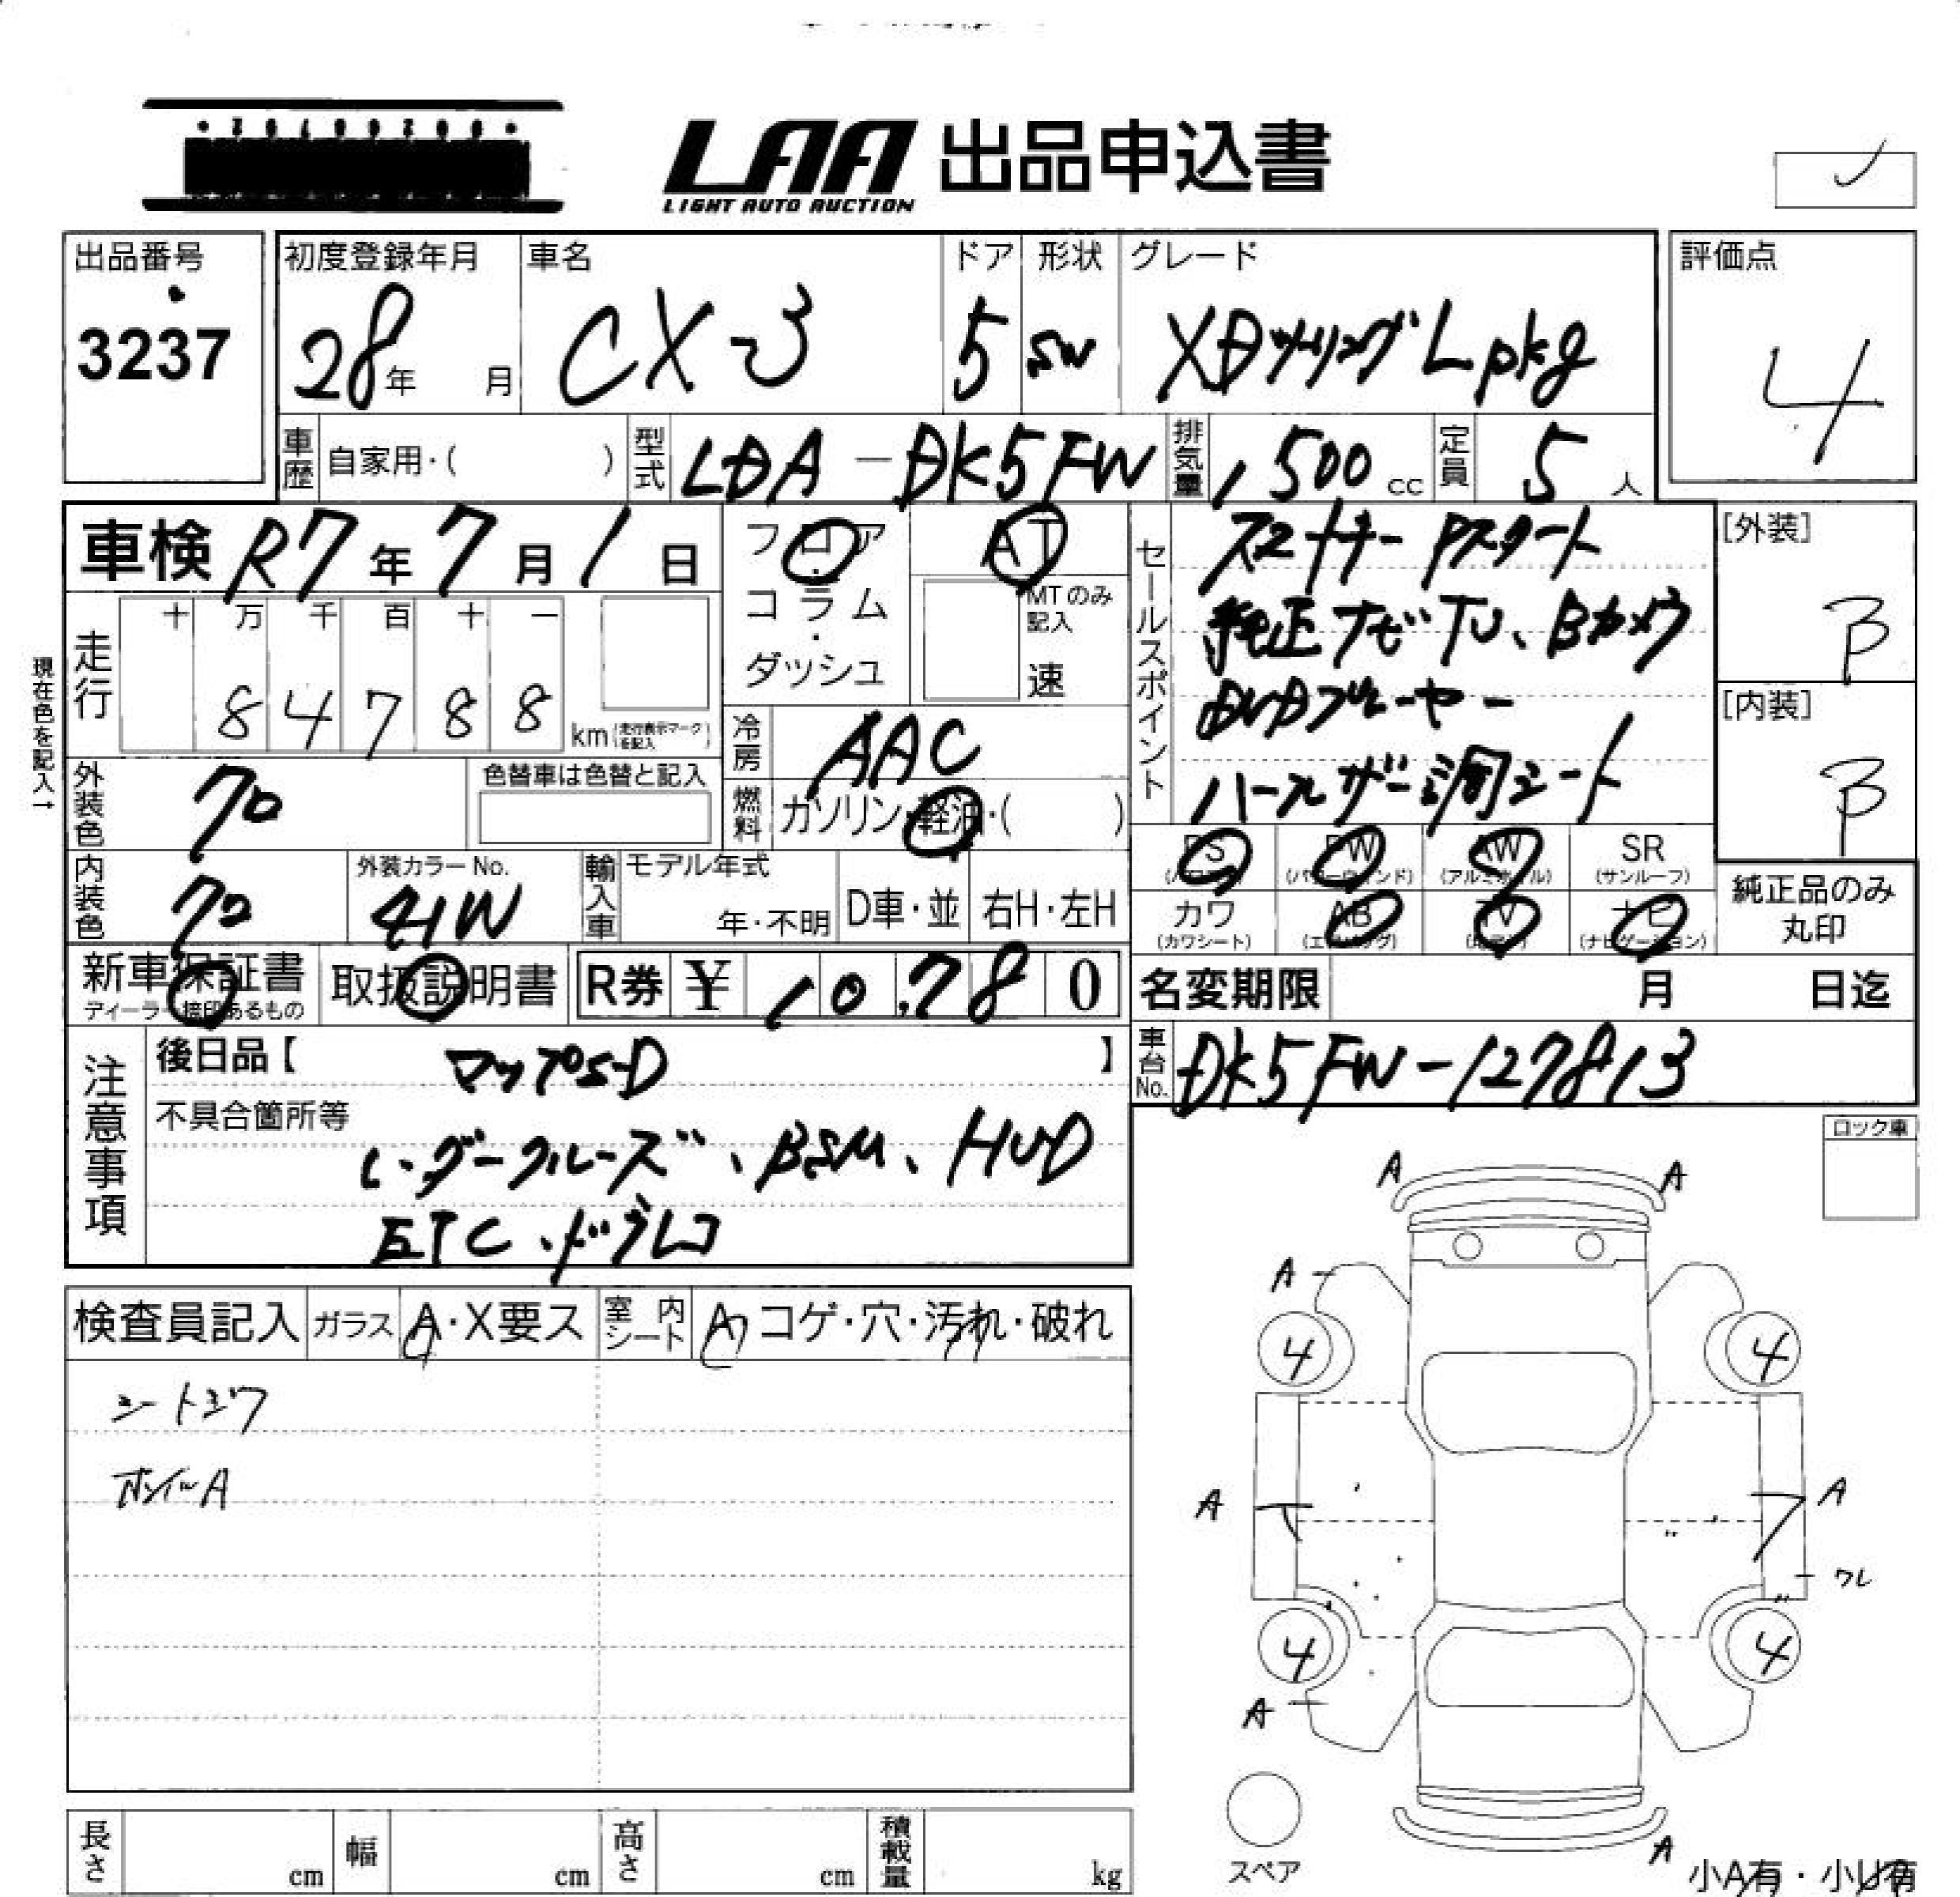 LAA 出品申込書
LIGHT AUTO AUCTION
出品番号
3237
初度登録年月
28年 月
車名
CX-3
ドア
5
形状
SW
グレード
XDツーリングLpkg
評価点
4
車歴 自家用・( )
型式 LDA-DK5FW
排気量 1,500 cc
定員 5 人
車検 R7年7月1日
フロア・コラム・ダッシュ
AT
MTのみ記入
速
走行
十 万 千 百 十 一
8 4 7 8 8
km (走行表示マークを記入)
現在色を記入→
外装色 クロ
色替車は色替と記入
内装色 クロ
外装カラーNo.
41W
冷房 AAC
燃料 ガソリン・軽油・( )
輸入車 モデル年式
年・不明
D車・並
右H・左H
セールスポイント
スマートキー Pスタート
純正ナビTV、Bカメラ
DVDプレーヤー
ハーフレザー調シート
[外装]
B
[内装]
B
PS PW AW SR
(パワステ) (パワーウィンド) (アルミホイル) (サンルーフ)
カワ AB TV ナビ
(カワシート) (エアバッグ) (ナビゲーション)
純正品のみ
丸印
新車保証書
ディーラー捺印あるもの
取扱説明書
R券 ¥ 10,780
名変期限 月 日迄
車台No. DK5FW-127813
注意事項
後日品【 マップSD 】
不具合箇所等
レーダークルーズ、BSM、HUD
ETC、ドラレコ
ロック車
検査員記入 ガラス A・X要ス 室内シート A コゲ・穴・汚れ・破れ
シートシワ
ホイールA
A A
A
4 4
A A
ワレ
4 4
A
A
スペア
小A有・小U有
長さ cm 幅 cm 高さ cm 積載量 kg